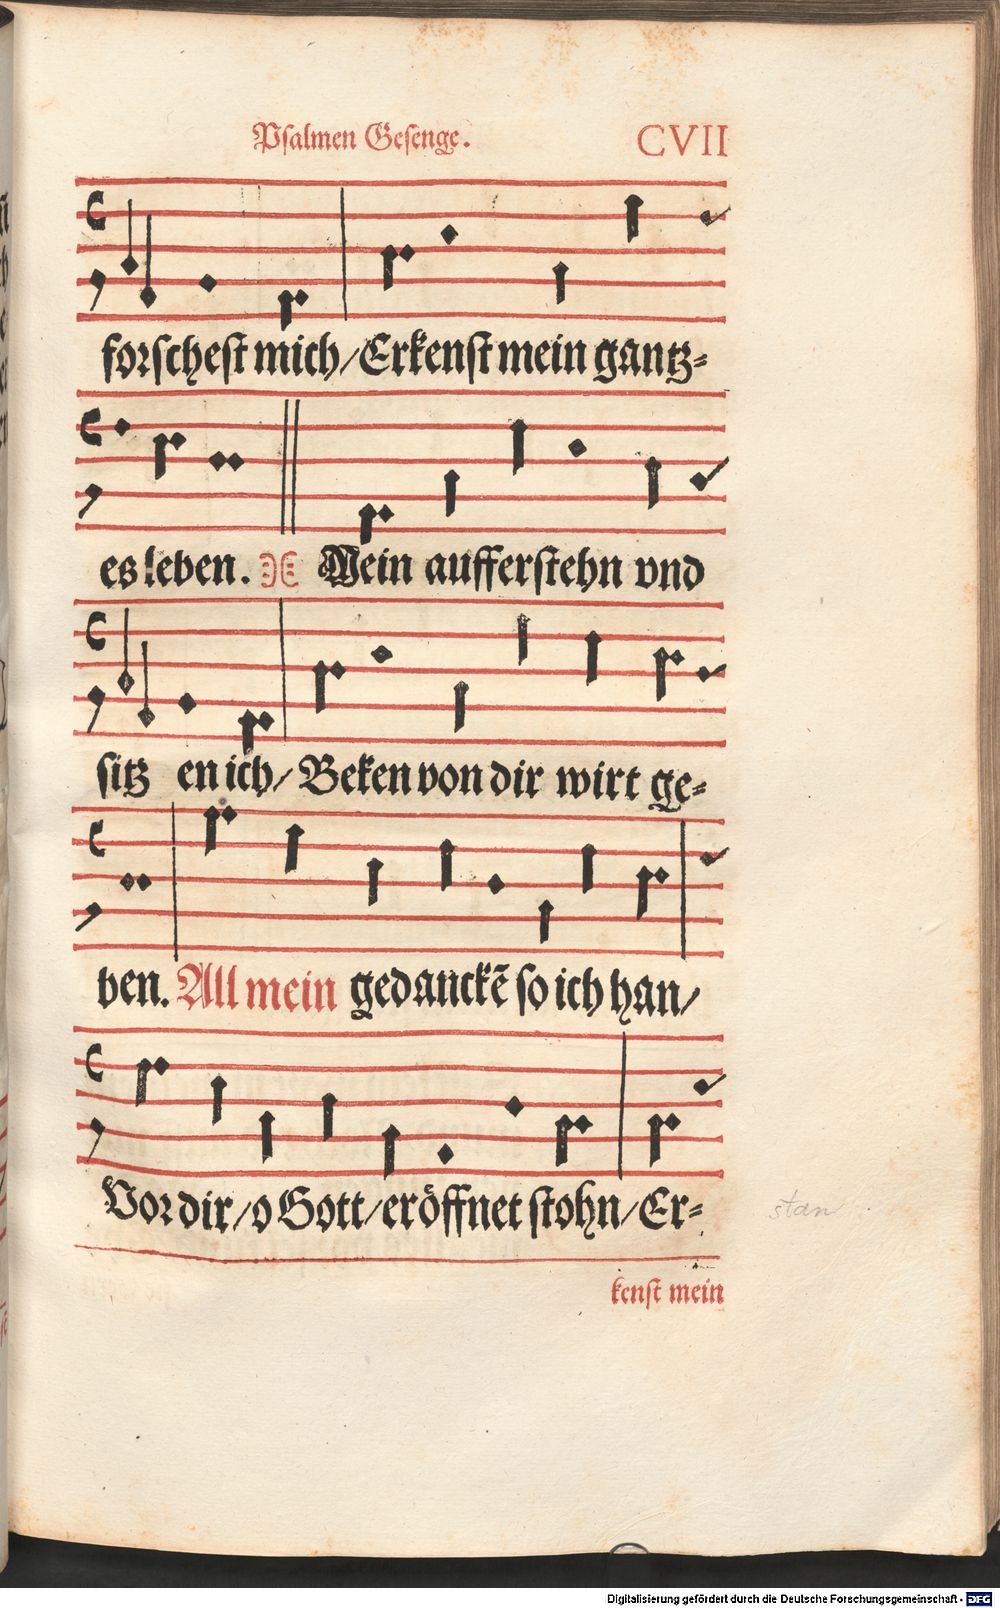 Psalmen Gesenge. CVII
forschest mich/Erkenst mein gantz-
es leben. Mein aufferstehn vnd
sitz en ich/Beken von dir wirt ge-
ben. All mein gedanckē so ich han/
Vor dir/o Gott/eröffnet stohn/Er-
stan
kenst mein
Digitalisierung gefördert durch die Deutsche Forschungsgemeinschaft - DFG